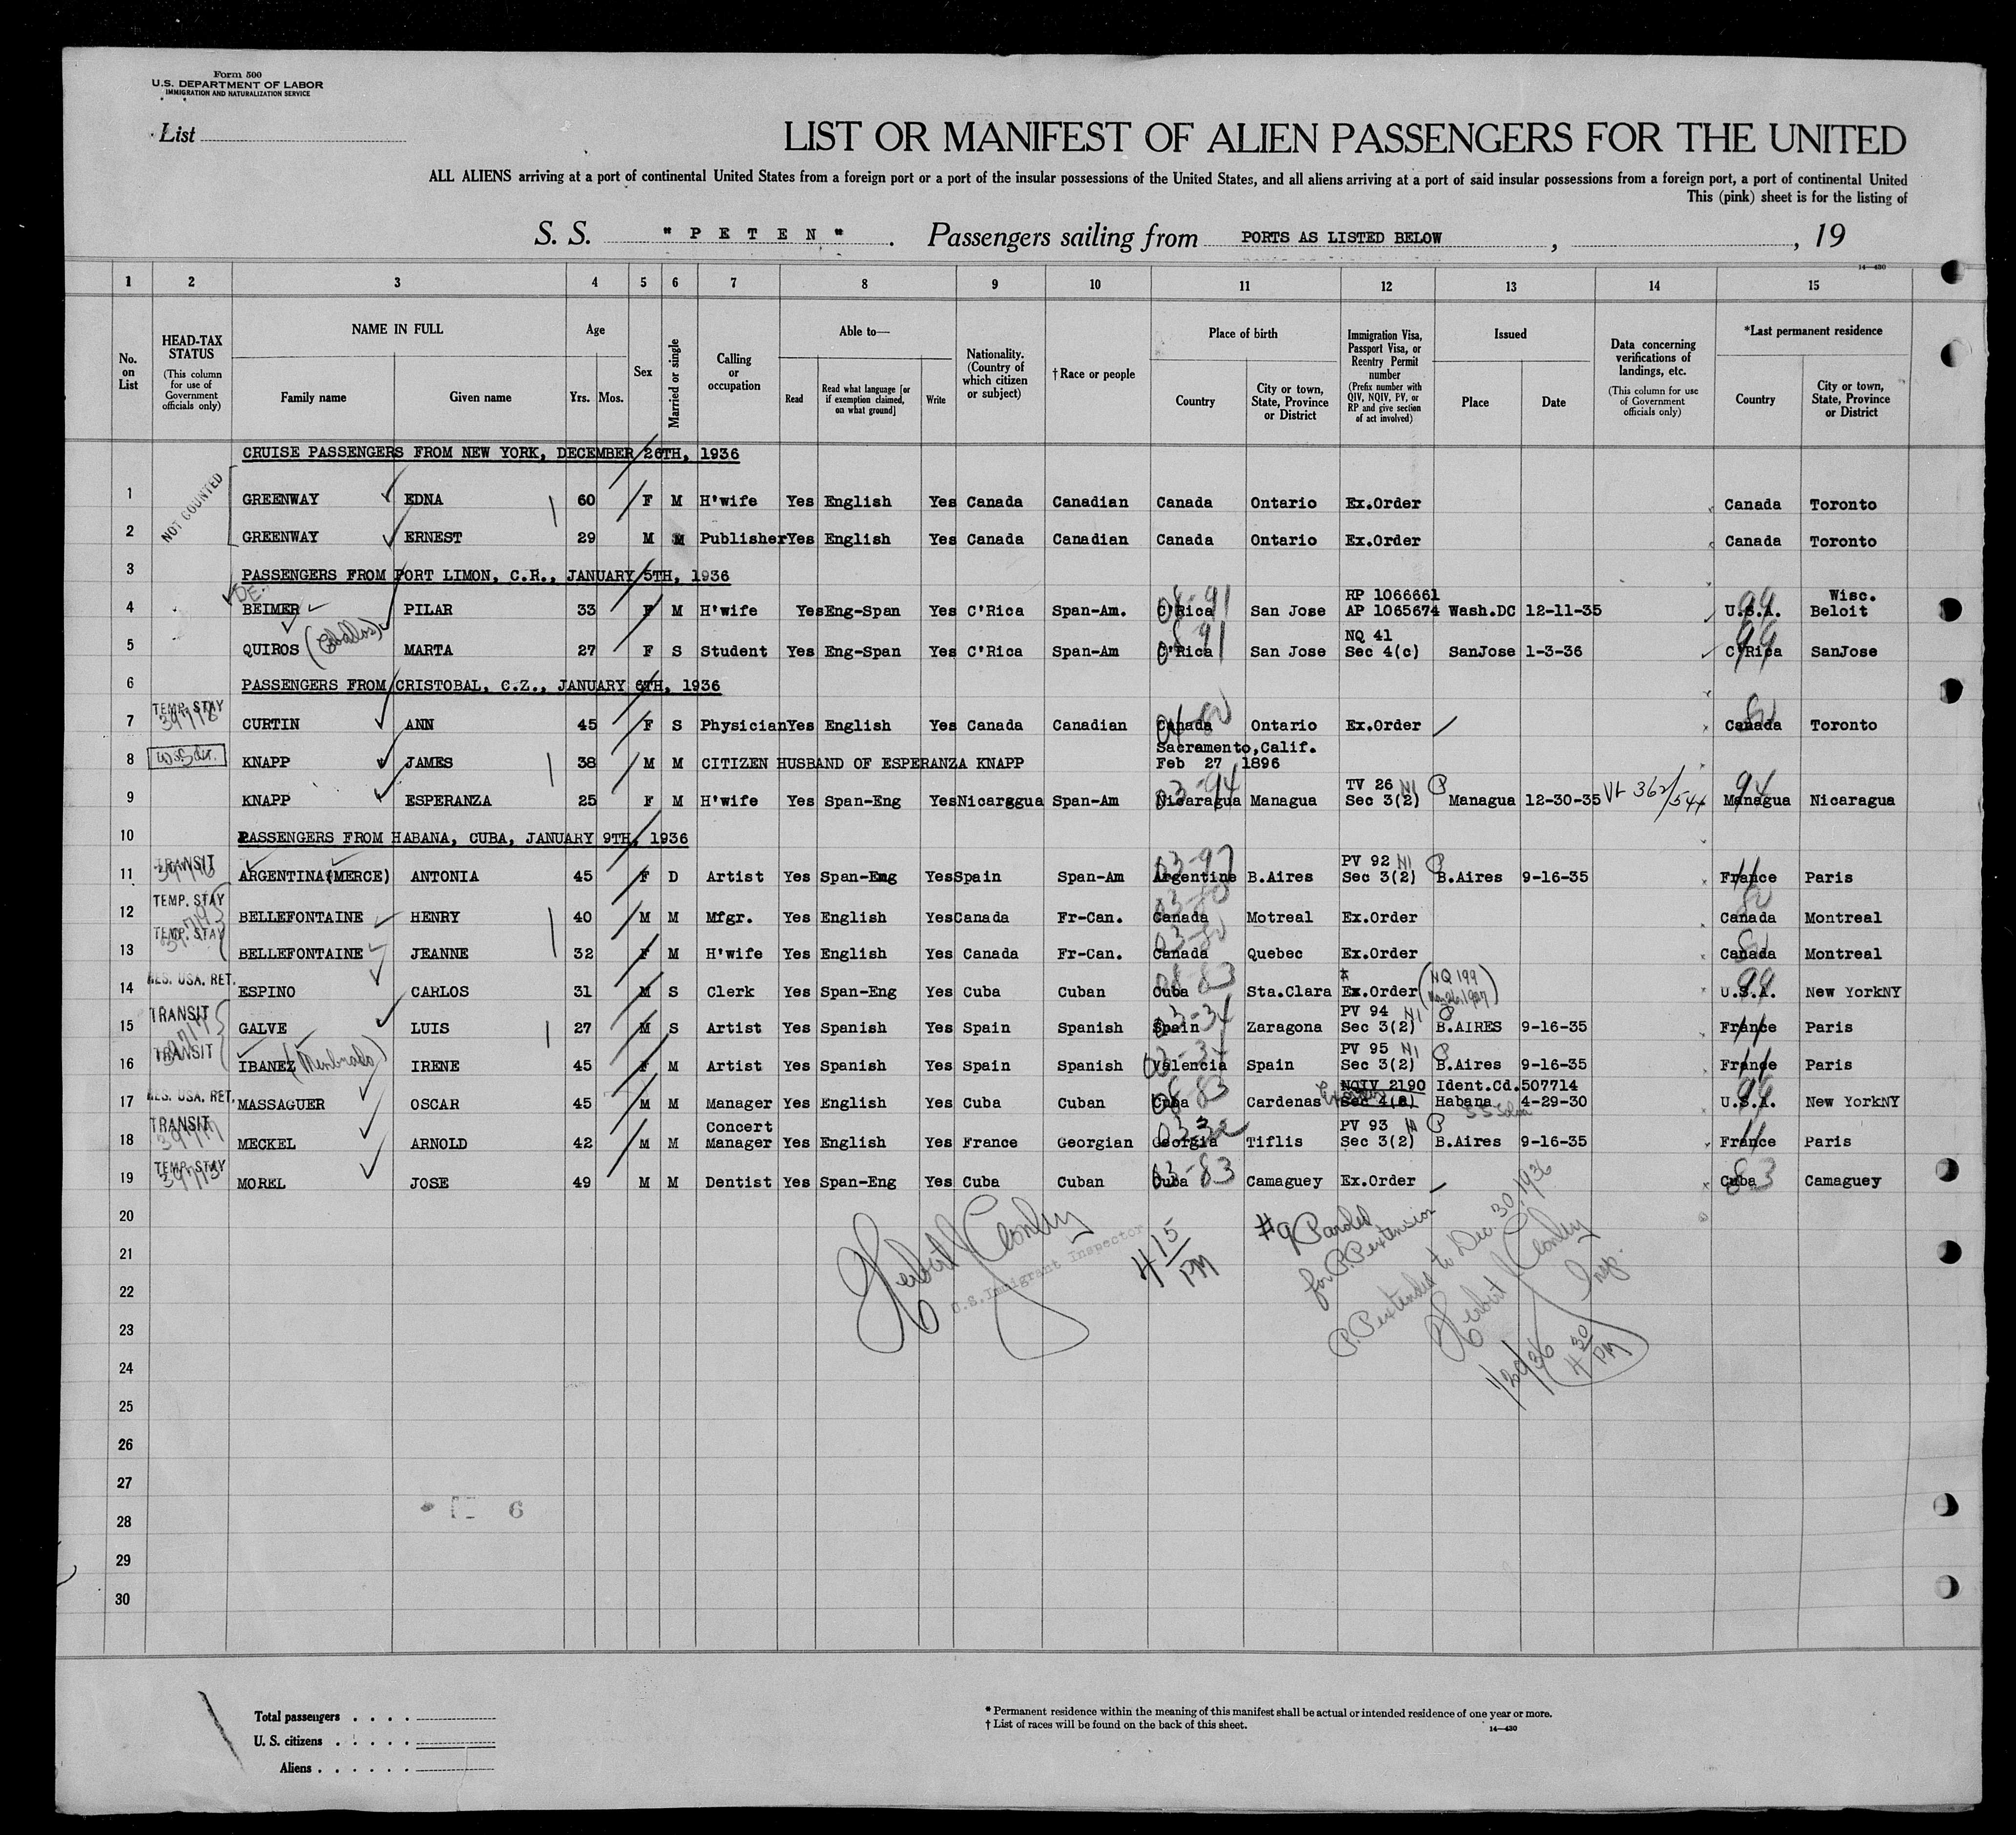 Form 500
U.S. DEPARTMENT OF LABOR
IMMIGRATION AND NATURALIZATION SERVICE
List
LIST OR MANIFEST OF ALIEN PASSENGERS FOR THE UNITED
ALL ALIENS arriving at a port of continental United States from a foreign port or a port of the insular possessions of the United States, and all aliens arriving at a port of said insular possessions from a foreign port, a port of continental United
This (pink) sheet is for the listing of
S. S. "PETEN". Passengers sailing from PORTS AS LISTED BELOW, , 19
14—430
1 2 3 4 5 6 7 8 9 10 11 12 13 14 15
No. on List
HEAD-TAX STATUS (This column for use of Government officials only)
NAME IN FULL Family name Given name
Age Yrs. Mos.
Sex
Married or single
Calling or occupation
Able to— Read Read what language [or if exemption claimed, on what ground] Write
Nationality. (Country of which citizen or subject)
†Race or people
Place of birth Country City or town, State, Province or District
Immigration Visa, Passport Visa, or Reentry Permit number (Prefix number with QIV, NQIV, PV, or RP and give section of act involved)
Issued Place Date
Data concerning verifications of landings, etc. (This column for use of Government officials only)
*Last permanent residence Country City or town, State, Province or District
CRUISE PASSENGERS FROM NEW YORK, DECEMBER 26TH, 1936
NOT COUNTED
1 GREENWAY EDNA 60 F M H'wife Yes English Yes Canada Canadian Canada Ontario Ex.Order Canada Toronto
2 GREENWAY ERNEST 29 M M Publisher Yes English Yes Canada Canadian Canada Ontario Ex.Order Canada Toronto
3 PASSENGERS FROM PORT LIMON, C.R., JANUARY 5TH, 1936
DE. RP 1066661 Wisc.
4 BEIMER PILAR 33 F M H'wife Yes Eng-Span Yes C'Rica Span-Am. C'Rica 08-91 San Jose AP 1065674 Wash.DC 12-11-35 U.S.A. 99 Beloit
NQ 41
5 QUIROS (Ceballos) MARTA 27 F S Student Yes Eng-Span Yes C'Rica Span-Am C'Rica 08 91 San Jose Sec 4(c) SanJose 1-3-36 C'Rica 99 SanJose
6 PASSENGERS FROM CRISTOBAL, C.Z., JANUARY 6TH, 1936
TEMP. STAY
7 CURTIN ANN 45 F S Physician Yes English Yes Canada Canadian Canada Ontario Ex.Order Canada Toronto
Sacramento,Calif.
8 KNAPP JAMES 38 M M CITIZEN HUSBAND OF ESPERANZA KNAPP Feb 27 1896
TV 26 NI P
9 KNAPP ESPERANZA 25 F M H'wife Yes Span-Eng Yes Nicaragua Span-Am Nicaragua 03-94 Managua Sec 3(2) Managua 12-30-35 Managua 94 Nicaragua
10 PASSENGERS FROM HABANA, CUBA, JANUARY 9TH, 1936
TRANSIT PV 92 NI P
11 ARGENTINA(MERCE) ANTONIA 45 F D Artist Yes Span-Eng Yes Spain Span-Am Argentine 03-97 B.Aires Sec 3(2) B.Aires 9-16-35 France 11 Paris
TEMP. STAY
12 BELLEFONTAINE HENRY 40 M M Mfgr. Yes English Yes Canada Fr-Can. Canada 03-80 Motreal Ex.Order Canada 80 Montreal
TEMP. STAY
13 BELLEFONTAINE JEANNE 32 F M H'wife Yes English Yes Canada Fr-Can. Canada 03-80 Quebec Ex.Order Canada 80 Montreal
RES. USA. RET.
14 ESPINO CARLOS 31 M S Clerk Yes Span-Eng Yes Cuba Cuban Cuba 08 83 Sta.Clara Ex.Order (NQ 199 U.S.A. 99 New YorkNY
TRANSIT PV 94 NI P
15 GALVE LUIS 27 M S Artist Yes Spanish Yes Spain Spanish Spain 03-34 Zaragona Sec 3(2) B.AIRES 9-16-35 France 11 Paris
TRANSIT PV 95 NI P
16 IBANEZ (Membrado) IRENE 45 F M Artist Yes Spanish Yes Spain Spanish Valencia 03-34 Spain Sec 3(2) B.Aires 9-16-35 France 11 Paris
RES. USA. RET. NQIV 2190 Ident.Cd.507714
17 MASSAGUER OSCAR 45 M M Manager Yes English Yes Cuba Cuban Cuba 08 83 Cardenas Sec 4(a) Habana 4-29-30 U.S.A. 99 New YorkNY
TRANSIT Concert PV 93 P
18 MECKEL ARNOLD 42 M M Manager Yes English Yes France Georgian Georgia Tiflis Sec 3(2) B.Aires 9-16-35 France 11 Paris
TEMP. STAY 39773
19 MOREL JOSE 49 M M Dentist Yes Span-Eng Yes Cuba Cuban Cuba 03-83 Camaguey Ex.Order Cuba 83 Camaguey
20
21
22
23
24
25
26
27
28
29
30
U.S. Immigrant Inspector
4 15 PM
#9 Paroled
for P.P. extension
P.P. extended to Dec. 30, 1936
Insp.
1/20/36
4 30 PM
6
Total passengers
U. S. citizens
Aliens
* Permanent residence within the meaning of this manifest shall be actual or intended residence of one year or more.
† List of races will be found on the back of this sheet.
14—430